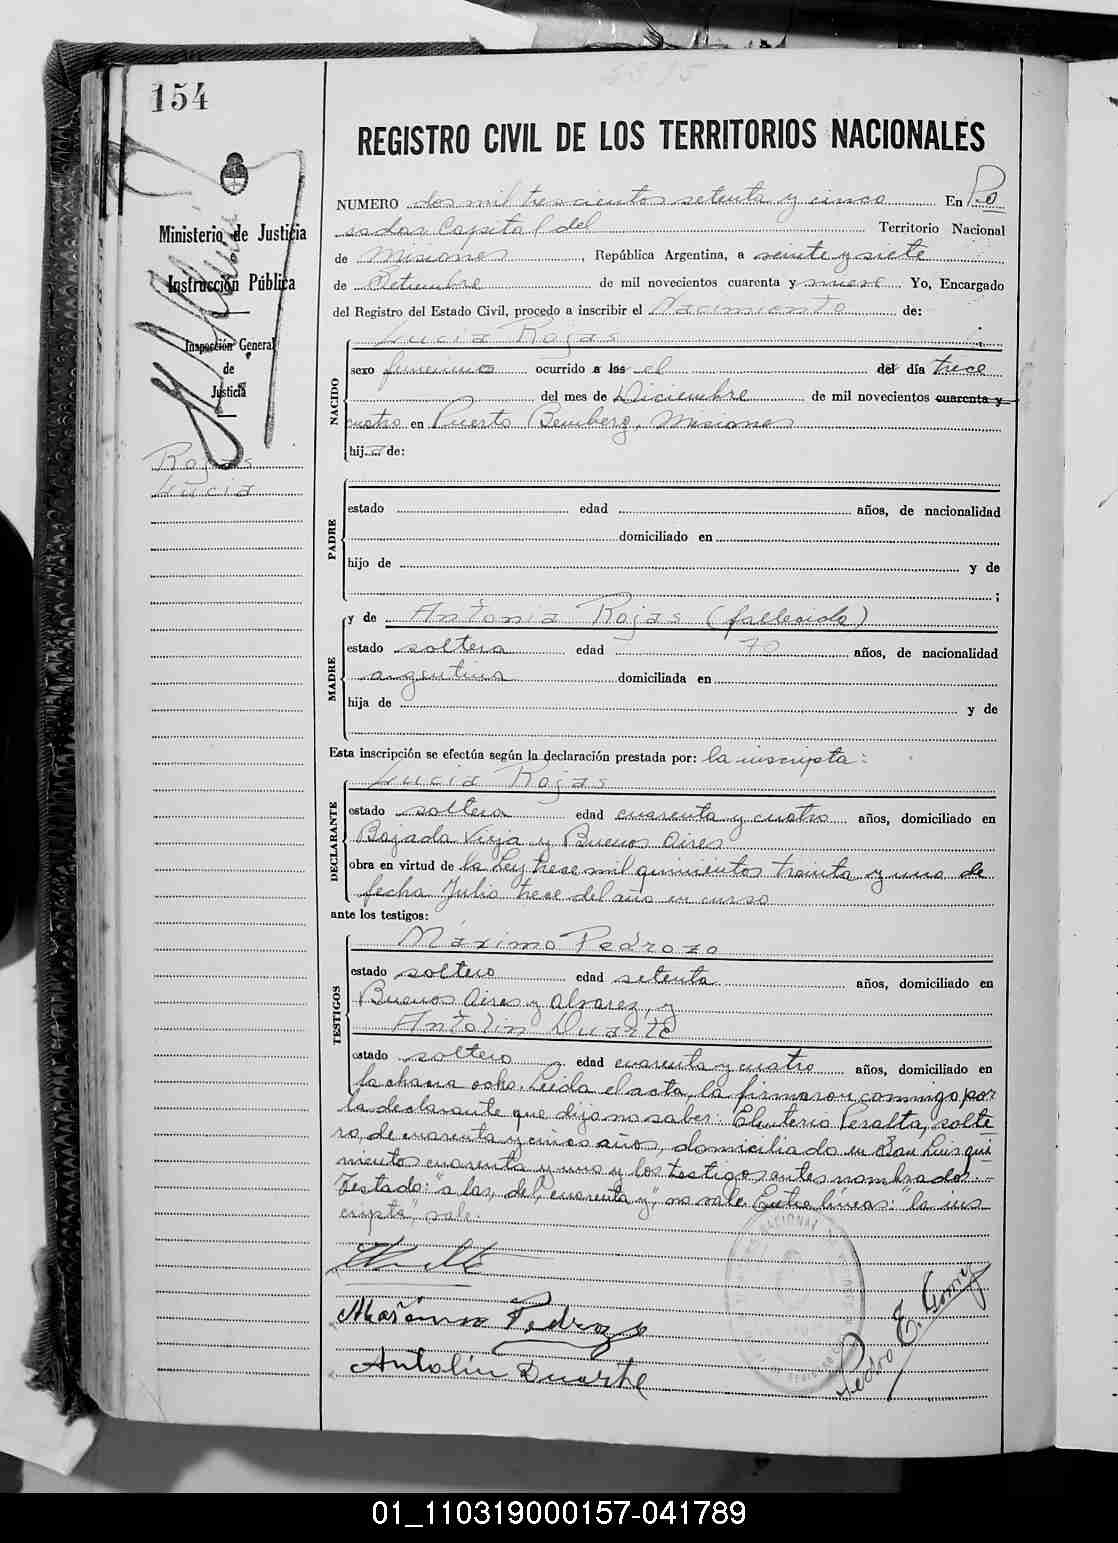 154
REGISTRO CIVIL DE LOS TERRITORIOS NACIONALES
Ministerio de Justicia
Instrucción Pública
Inspección General
de
Justicia
Rojas
Lucia
NUMERO dos mil trescientos setenta y cinco En Po
sadas Capital del Territorio Nacional
de Misiones, República Argentina, a veinte y siete
de Setiembre de mil novecientos cuarenta y nueve Yo, Encargado
del Registro del Estado Civil, procedo a inscribir el Nacimiento de:
NACIDO
Lucia Rojas
sexo femenino ocurrido a las el del día trece
del mes de Diciembre de mil novecientos cuarenta y
cuatro en Puerto Bemberg, Misiones
hija de:
PADRE
estado edad años, de nacionalidad
domiciliado en
hijo de y de
;
MADRE
y de Antonia Rojas (fallecida)
estado soltera edad 70 años, de nacionalidad
argentina domiciliada en
hija de y de
Esta inscripción se efectúa según la declaración prestada por: la inscripta:
DECLARANTE
Lucia Rojas
estado soltera edad cuarenta y cuatro años, domiciliado en
Bajada Vieja y Buenos Aires
obra en virtud de la Ley trece mil quinientos treinta y uno de
fecha Julio trece del año en curso
ante los testigos:
TESTIGOS
Máximo Pedrozo
estado soltero edad setenta años, domiciliado en
Buenos Aires y Alvarez, y
Antolin Duarte
estado soltero edad cuarenta y cuatro años, domiciliado en
la chacra ocho. Leida el acta, la firmaron conmigo por
la declarante que dijo no saber: Eleuterio Peralta, solte
ro, de cuarenta y cinco años, domiciliado en San Luis qui
nientos cuarenta y uno y los testigos antes nombrados.
Testado: "a las, del, cuarenta y", no vale. Entre lineas: "la ins
cripta", vale.
Maximo Pedrozo
Antolin Duarte
Pedro E. Gomez
01_110319000157-041789